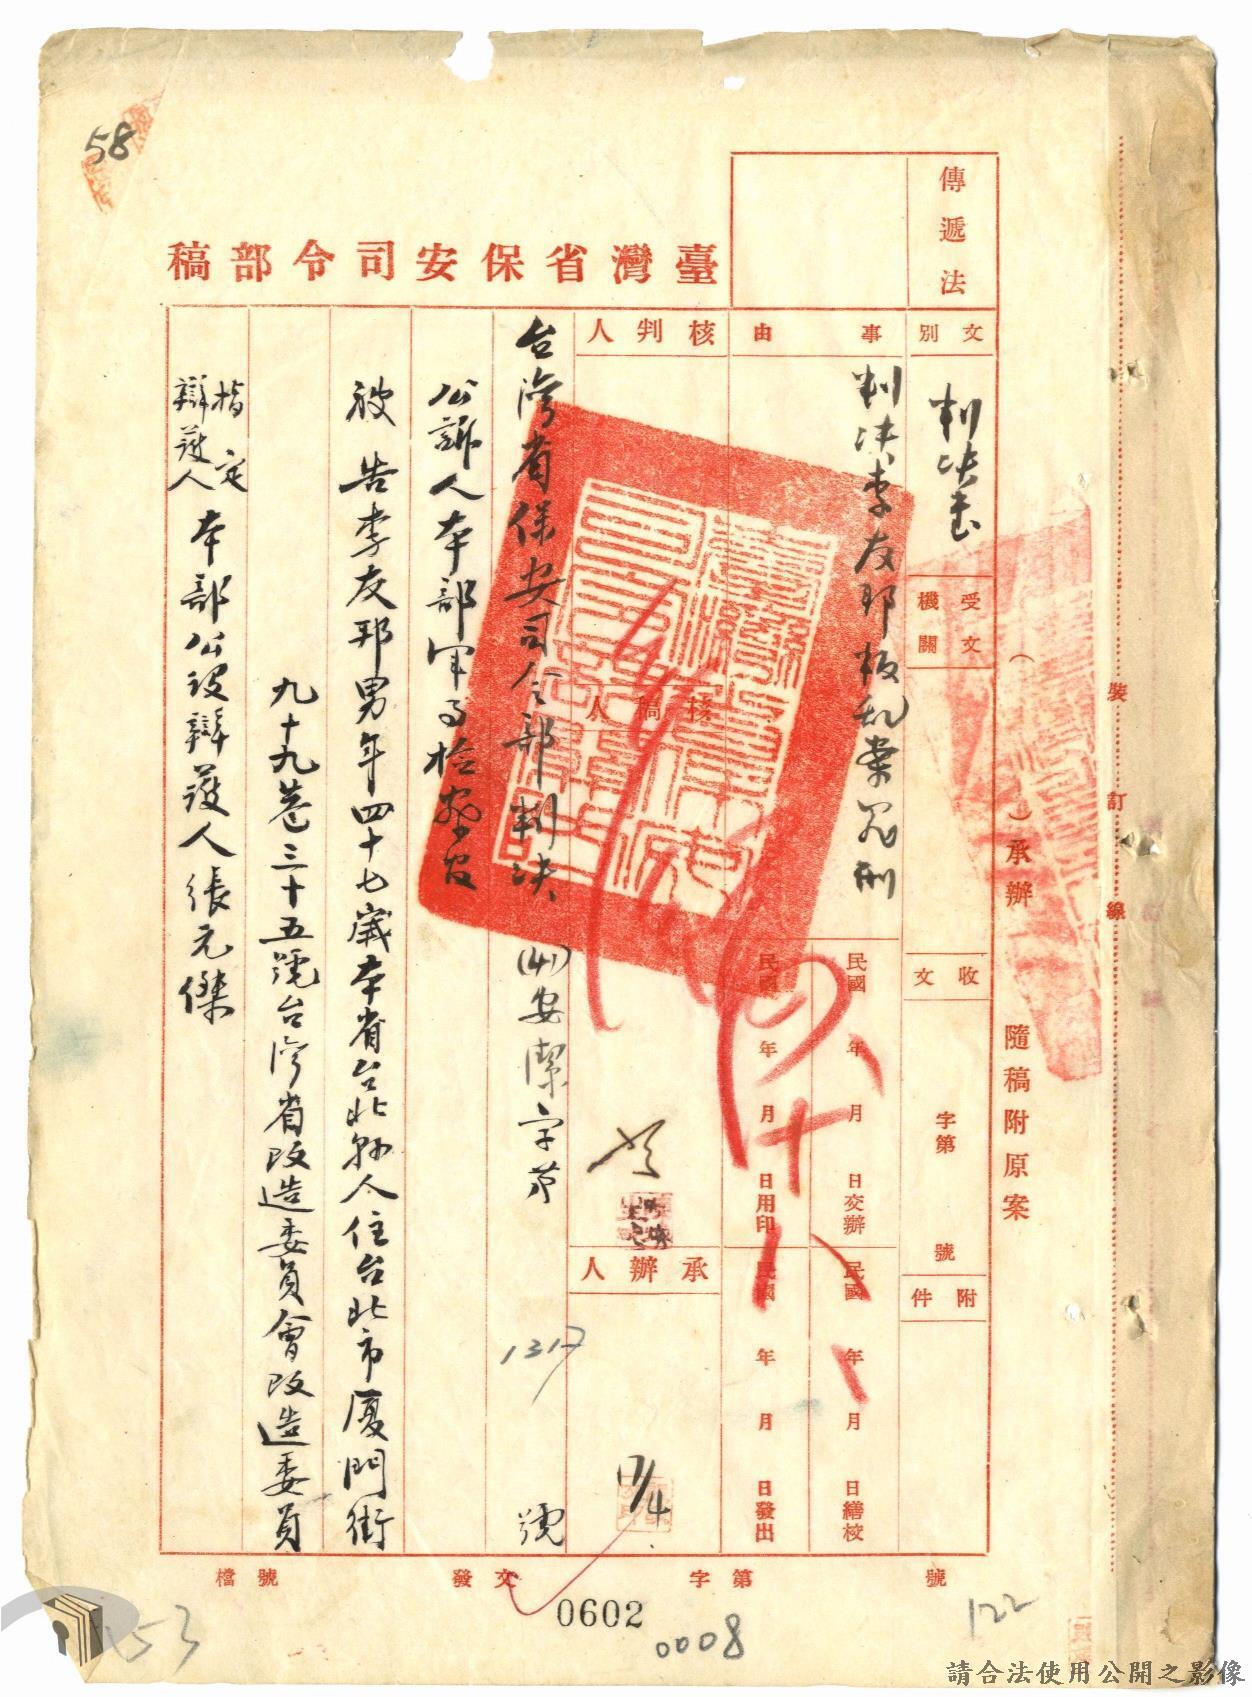 58
傳遞法
臺灣省保安司令部稿
文別
判決書
受文機關
收文
字第
號
附件
事由
判決李友邦叛亂案死刑
民國 年 月 日交辦
民國 年 月 日繕校
民國 年 月 日用印
民國 年 月 日發出
核判人
核稿人
承辦人
17/4
台灣省保安司令部判決
(41)安潔字第
1317
號
公訴人本部軍事檢察官
被告李友邦男年四十七歲本省台北縣人住台北市廈門街
九十九巷三十五號台灣省改造委員會改造委員
指定
辯護人
本部公設辯護人張元傑
( )承辦
隨稿附原案
裝訂線
檔號
發文
字第
號
0602
0008
122
153
請合法使用公開之影像